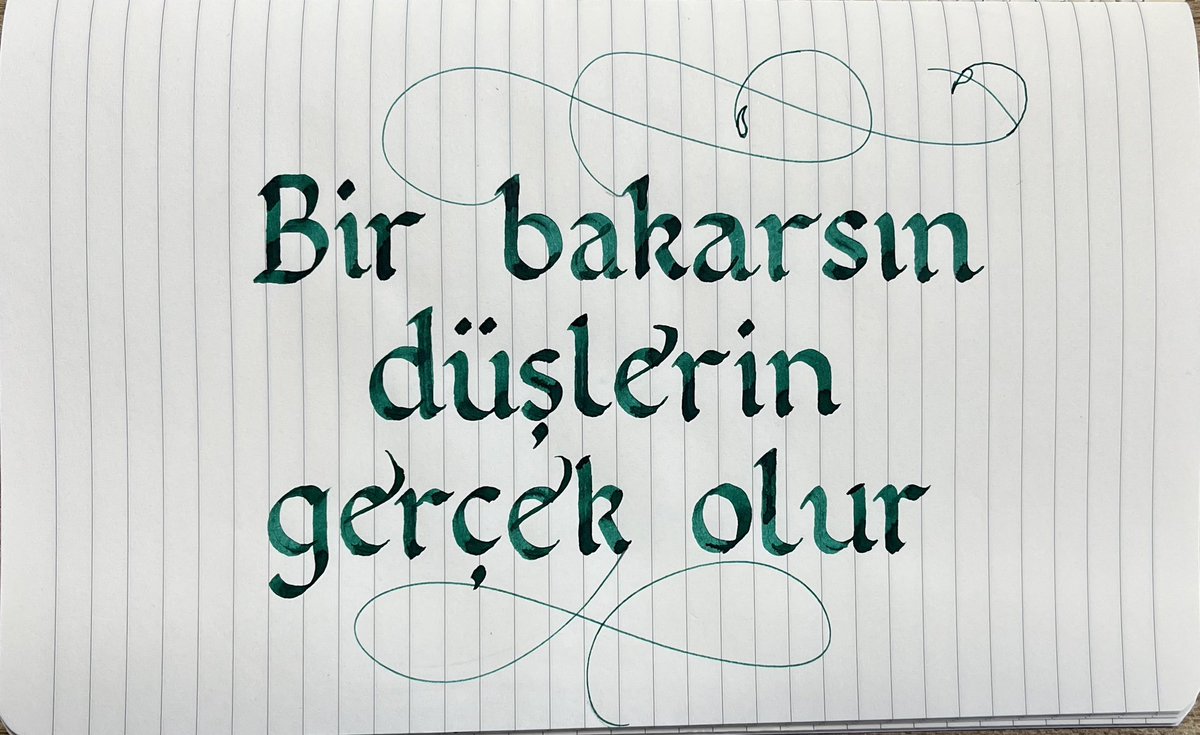 Bir bakarsın
düşlerin
gerçek olur